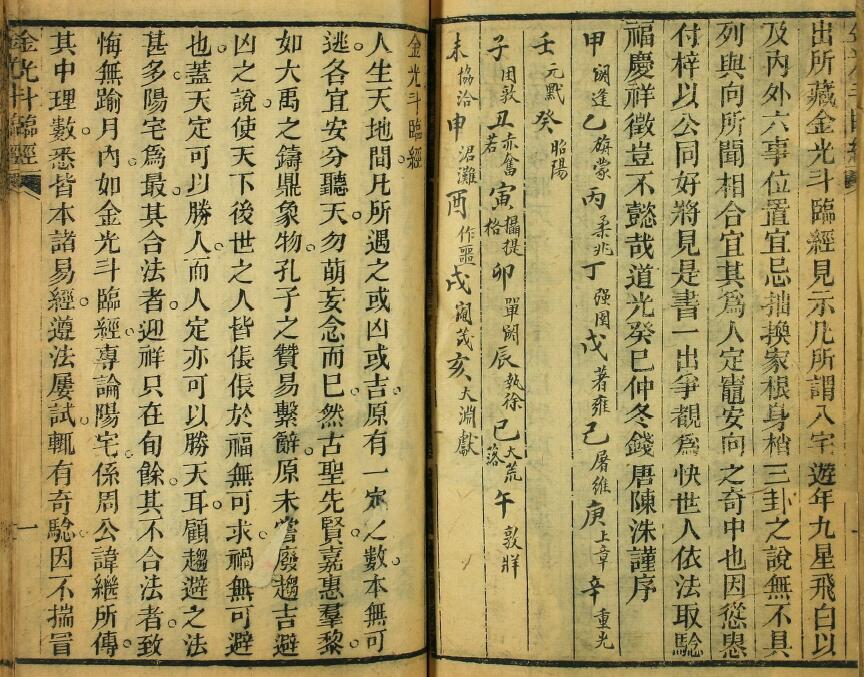 出所藏金光斗臨經見示凡所謂八宅遊年九星飛白以
及內外六事位置宜忌抽換家根身梢三卦之說無不具
列與向所聞相合宜其爲人定竈安向之奇中也因慫恿
付梓以公同好將見是書一出爭覩爲快世人依法取驗
福慶祥徵豈不懿哉道光癸巳仲冬錢唐陳洙謹序
甲 閼逢 乙 旃蒙 丙 柔兆 丁 强圉 戊 著雍 己 屠維 庚 上章 辛 重光
壬 元黓 癸 昭陽
子 困敦 丑 赤奮若 寅 攝提格 卯 單閼 辰 執徐 巳 大荒落 午 敦牂
未 協洽 申 涒灘 酉 作噩 戌 閹茂 亥 大淵獻
金光斗臨經
人生天地間凡所遇之或凶或吉。原有一定之數。本無可
逃。各宜安分聽天。勿萌妄念而已。然古聖先賢。嘉惠羣黎。
如大禹之鑄鼎象物。孔子之贊易繫辭。原未嘗廢趨吉避
凶之說。使天下後世之人。皆倀倀於福無可求。禍無可避
也。蓋天定可以勝人。而人定亦可以勝天耳。顧趨避之法
甚多。陽宅爲最。其合法者。迎祥只在旬餘。其不合法者。致
悔無踰月內。如金光斗臨經。專論陽宅。係周公諱繼所傳。
其中理數。悉皆本諸易經。遵法屢試。輒有奇驗。因不揣冒
金光斗臨經
一